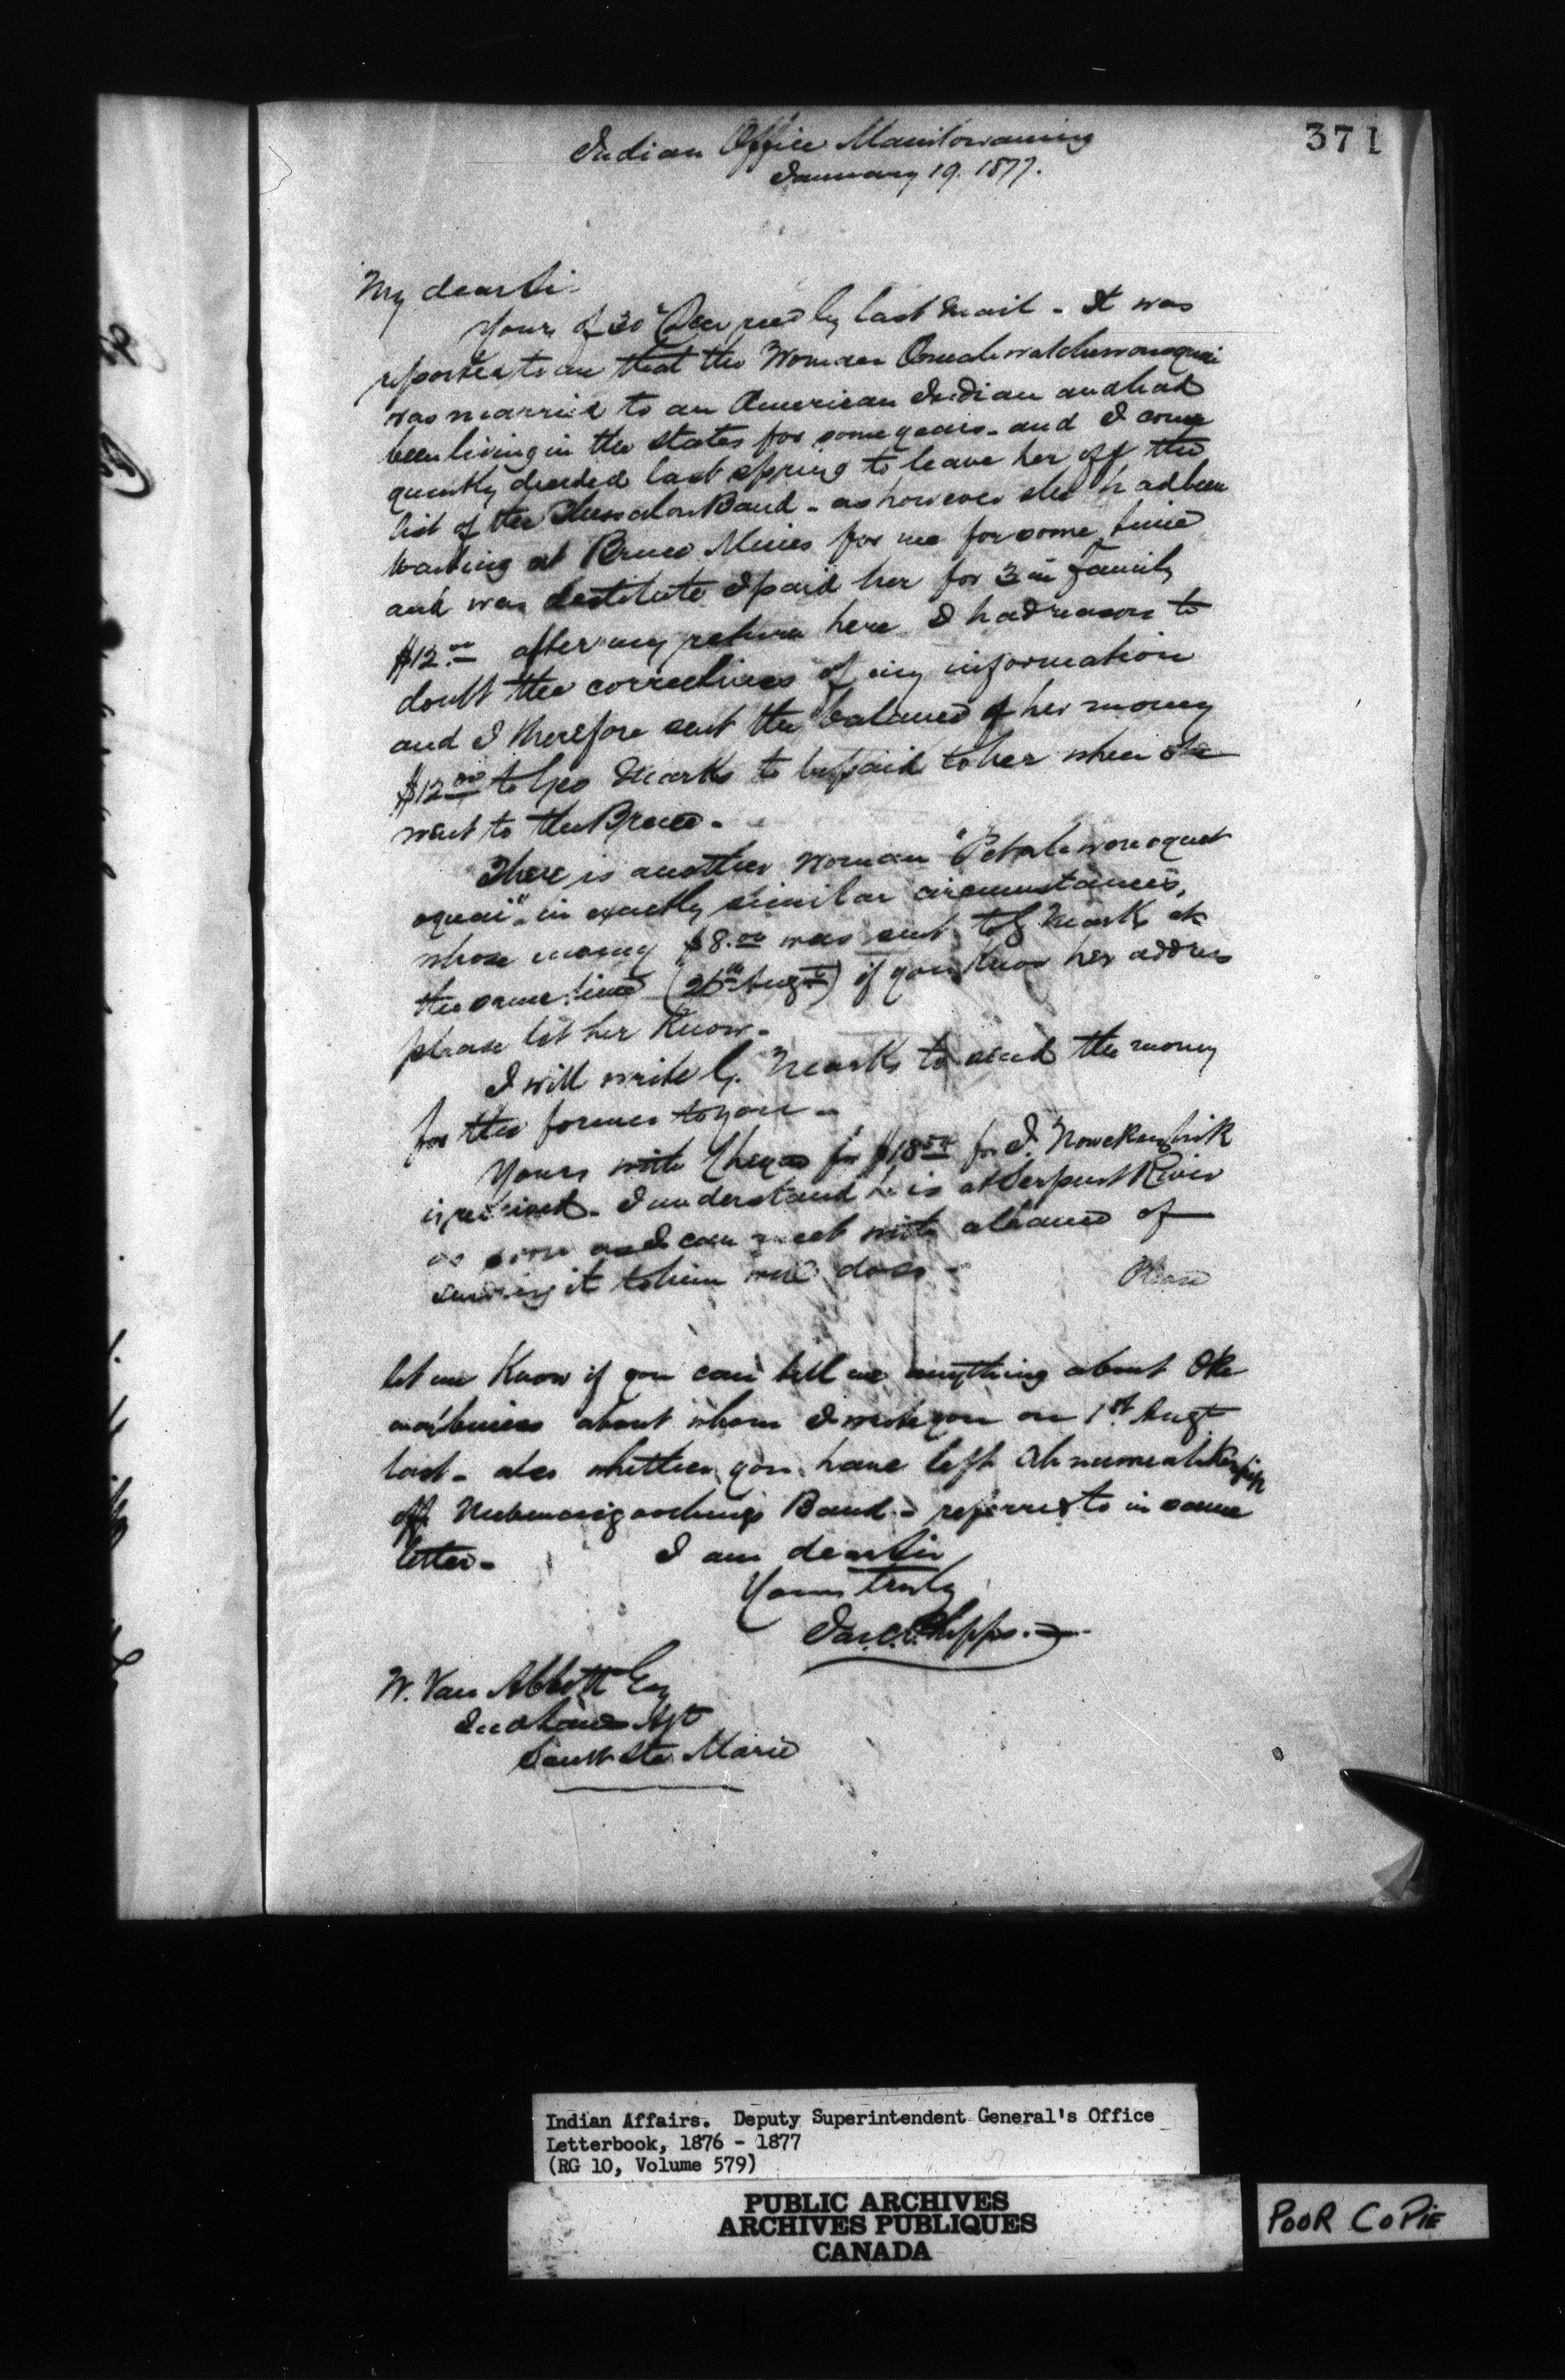 371
Indian Office Manitowaning
January 19. 1877.
My dear Sir
Yours of 30 Dec recd by last mail - It was
reported to me that the Woman
was married to an American Indian and had
been living in the States for some years - and I conse
quently decided last spring to leave her off the
list of the Thessalon Band - as however she had been
waiting at Bruce Mines for me for some time
and was destitute I paid her for 3 in family
$12.00 after my return here I had reason to
doubt the correctness of my information
and I therefore sent the balance of her money
$12.00 to Geo Marks to be paid to her when she
went to the Bruce -
There is another Woman
oquai" - in exactly similar circumstances,
whose money $8.00 was sent to G Marks at
the same time (26th Augt) if you know her address
please let her know -
I will write G. Marks to send the money
for the former to you -
Yours with Cheque for $18 for J.
is received - I understand he is at Serpent River
as soon as I can meet with a chance of
sending it to him will do so -
Please
let me know if you can tell me anything about
about whom I wrote you on 1st Augt
last - also whether you have left
off Band - referred to in same
letter -
I am dear Sir
Yours truly
Jas. C. Phipps.
W. Van Abbott Esq
Ind Lands Agt
Sault Ste Marie
Indian Affairs. Deputy Superintendent General's Office
Letterbook, 1876 - 1877
(RG 10, Volume 579)
PUBLIC ARCHIVES
ARCHIVES PUBLIQUES
CANADA
POOR CoPiE